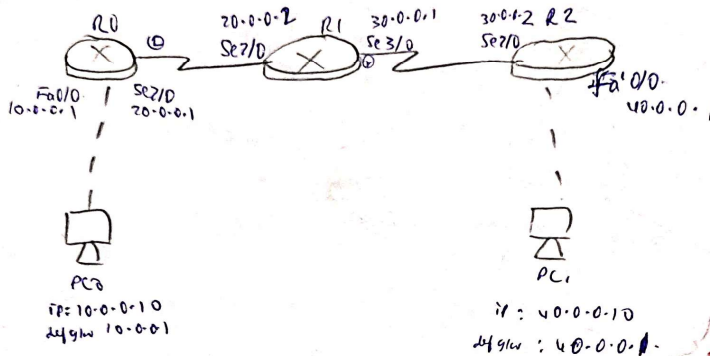 R0
20.0.0.2
R1
30.0.0.1
30.0.0.2 R2
Se2/0
Se3/0
Se2/0
Fa0/0
10.0.0.1
Se2/0
20.0.0.1
Fa0/0
40.0.0.
PC0
ip: 10.0.0.10
10.0.0.1
PC1
ip: 40.0.0.10
: 40.0.0.1